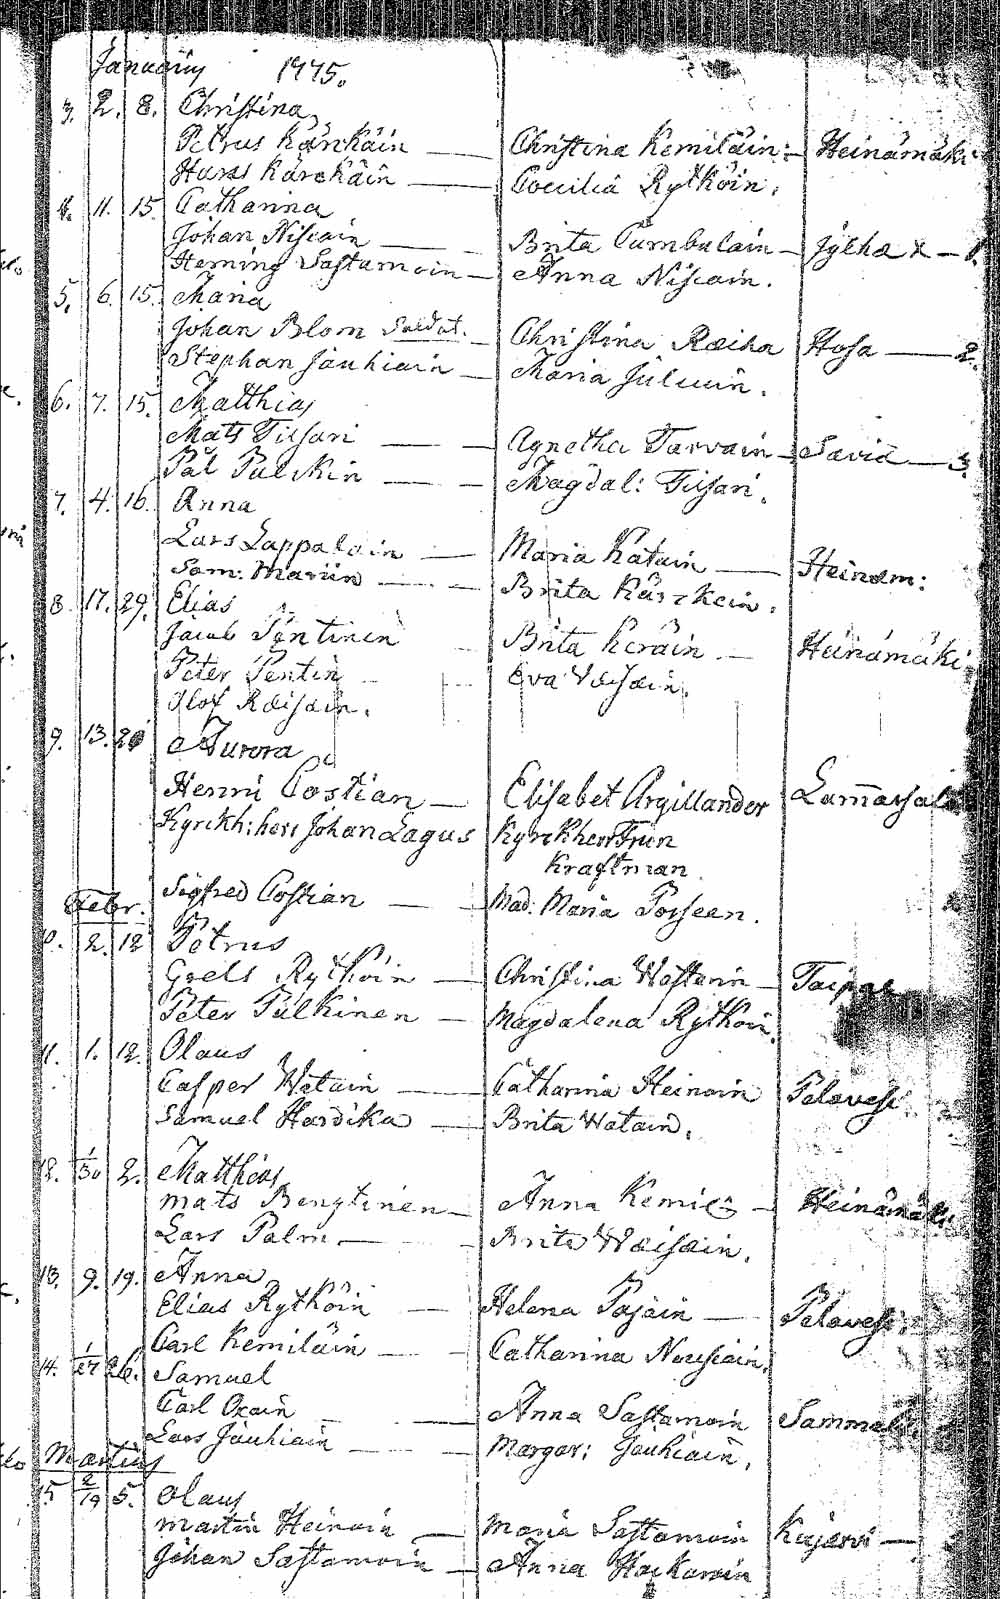 January 1775.
3. 2. 8. Christina
Petrus Kärckäin — Christina Kemiläin: — Heinämäki
Hans Kärckäin — Coecilia Rytköin.
4. 11. 15. Catharina
Johan Niscain — Brita Cumbulain — Jylhä x — 1.
Heming Sastamoin — Anna Niscain.
5. 6. 15. Maria
Johan Blom Soldat. — Christina Räihä Hosa — 2.
Stephan Jauhiain — Maria Julcuin.
6. 7. 15. Matthias
Mats Tissari — Agnetha Tarvain — Savia — 3.
Pål Pulckin — Magdal: Tissari.
7. 4. 16. Anna
Lars Lappalain — Maria Katain — Heinäm:
Sam: Mariin — Brita Kärckein.
8. 17. 29. Elias
Jacob Pöntinen Brita Keräin — Heinämäki
Peter Pentin — Eva Väisäin.
Olof Räisäin.
9. 13. 20 Aurora
Henric Costian — Elisabet Argillander Lam̄assalo
Kyrckh:herr Johan Lagus Kyrckherr Frun
Kraftman.
Sigfred Costian — Mad: Maria Posseen.
Febr.
10. 2. 12 Petrus
Grels Rytköin — Christina Wasterin — Taipale
Peter Pulkinen — Magdalena Rytköin.
11. 1. 12. Olaus
Casper Watain — Catharina Heinoin Pelavesi
Samuel Hardika — Brita Watain.
12. 1/30 2. Matthias
Mats Bengtinen — Anna Kemil: — Heinämäki
Lars Palm — Brita Wäisäin.
13. 9. 19. Anna
Elias Rytköin — Helena Pajain — Pelavesi.
Carl Kemiläin — Catharina Nousiain.
14. 1/27 26. Samuel
Carl Ocain — Anna Sastamoin Sammal:
Lars Jauhiain — Margar: Jauhiain.
Martius
15. 2/19 5. Olaus
Martin Heinoin — Maria Sastamoin Kujervi —
Johan Sastamoin — Anna Hackarain